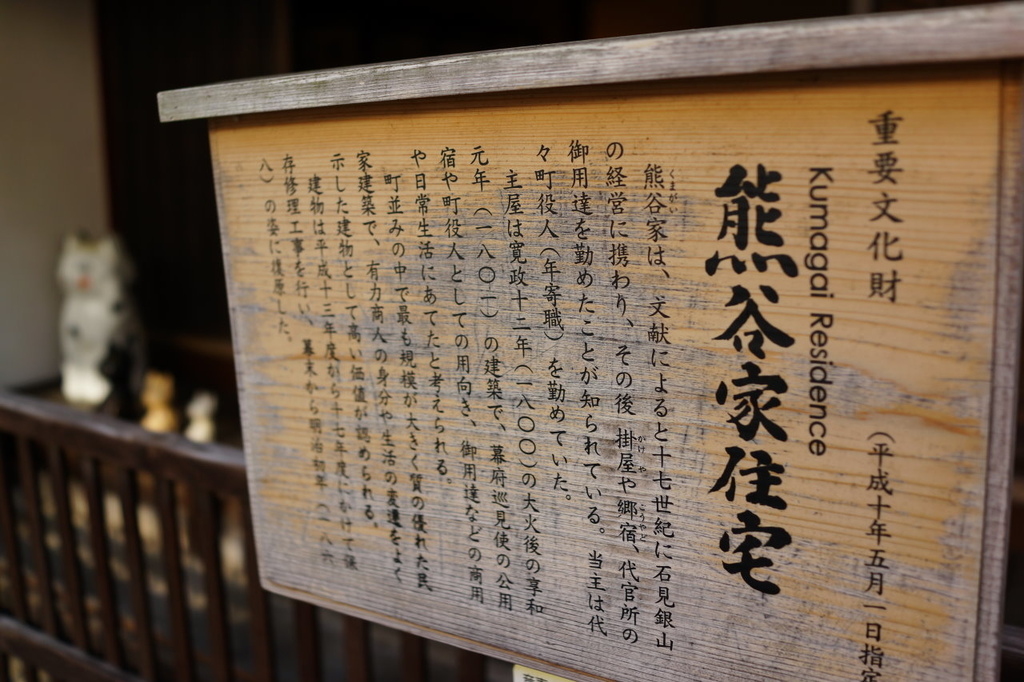 重要文化財 （平成十年五月一日指定
Kumagai Residence
熊谷家住宅
熊谷家は、文献によると十七世紀に石見銀山
の経営に携わり、その後 掛屋や郷宿、代官所の
御用達を勤めたことが知られている。当主は代
々町役人（年寄職）を勤めていた。
主屋は寛政十二年（一八〇〇）の大火後の享和
元年（一八〇一）の建築で、幕府巡見使の公用
宿や町役人としての用向き、御用達などの商用
や日常生活にあてたと考えられる。
町並みの中で最も規模が大きく質の優れた民
家建築で、有力商人の身分や生活の変遷をよく
示した建物として高い価値が認められる。
建物は平成十三年度から十七年度にかけて保
存修理工事を行い、幕末から明治初年（一八六
八）の姿に復原した。